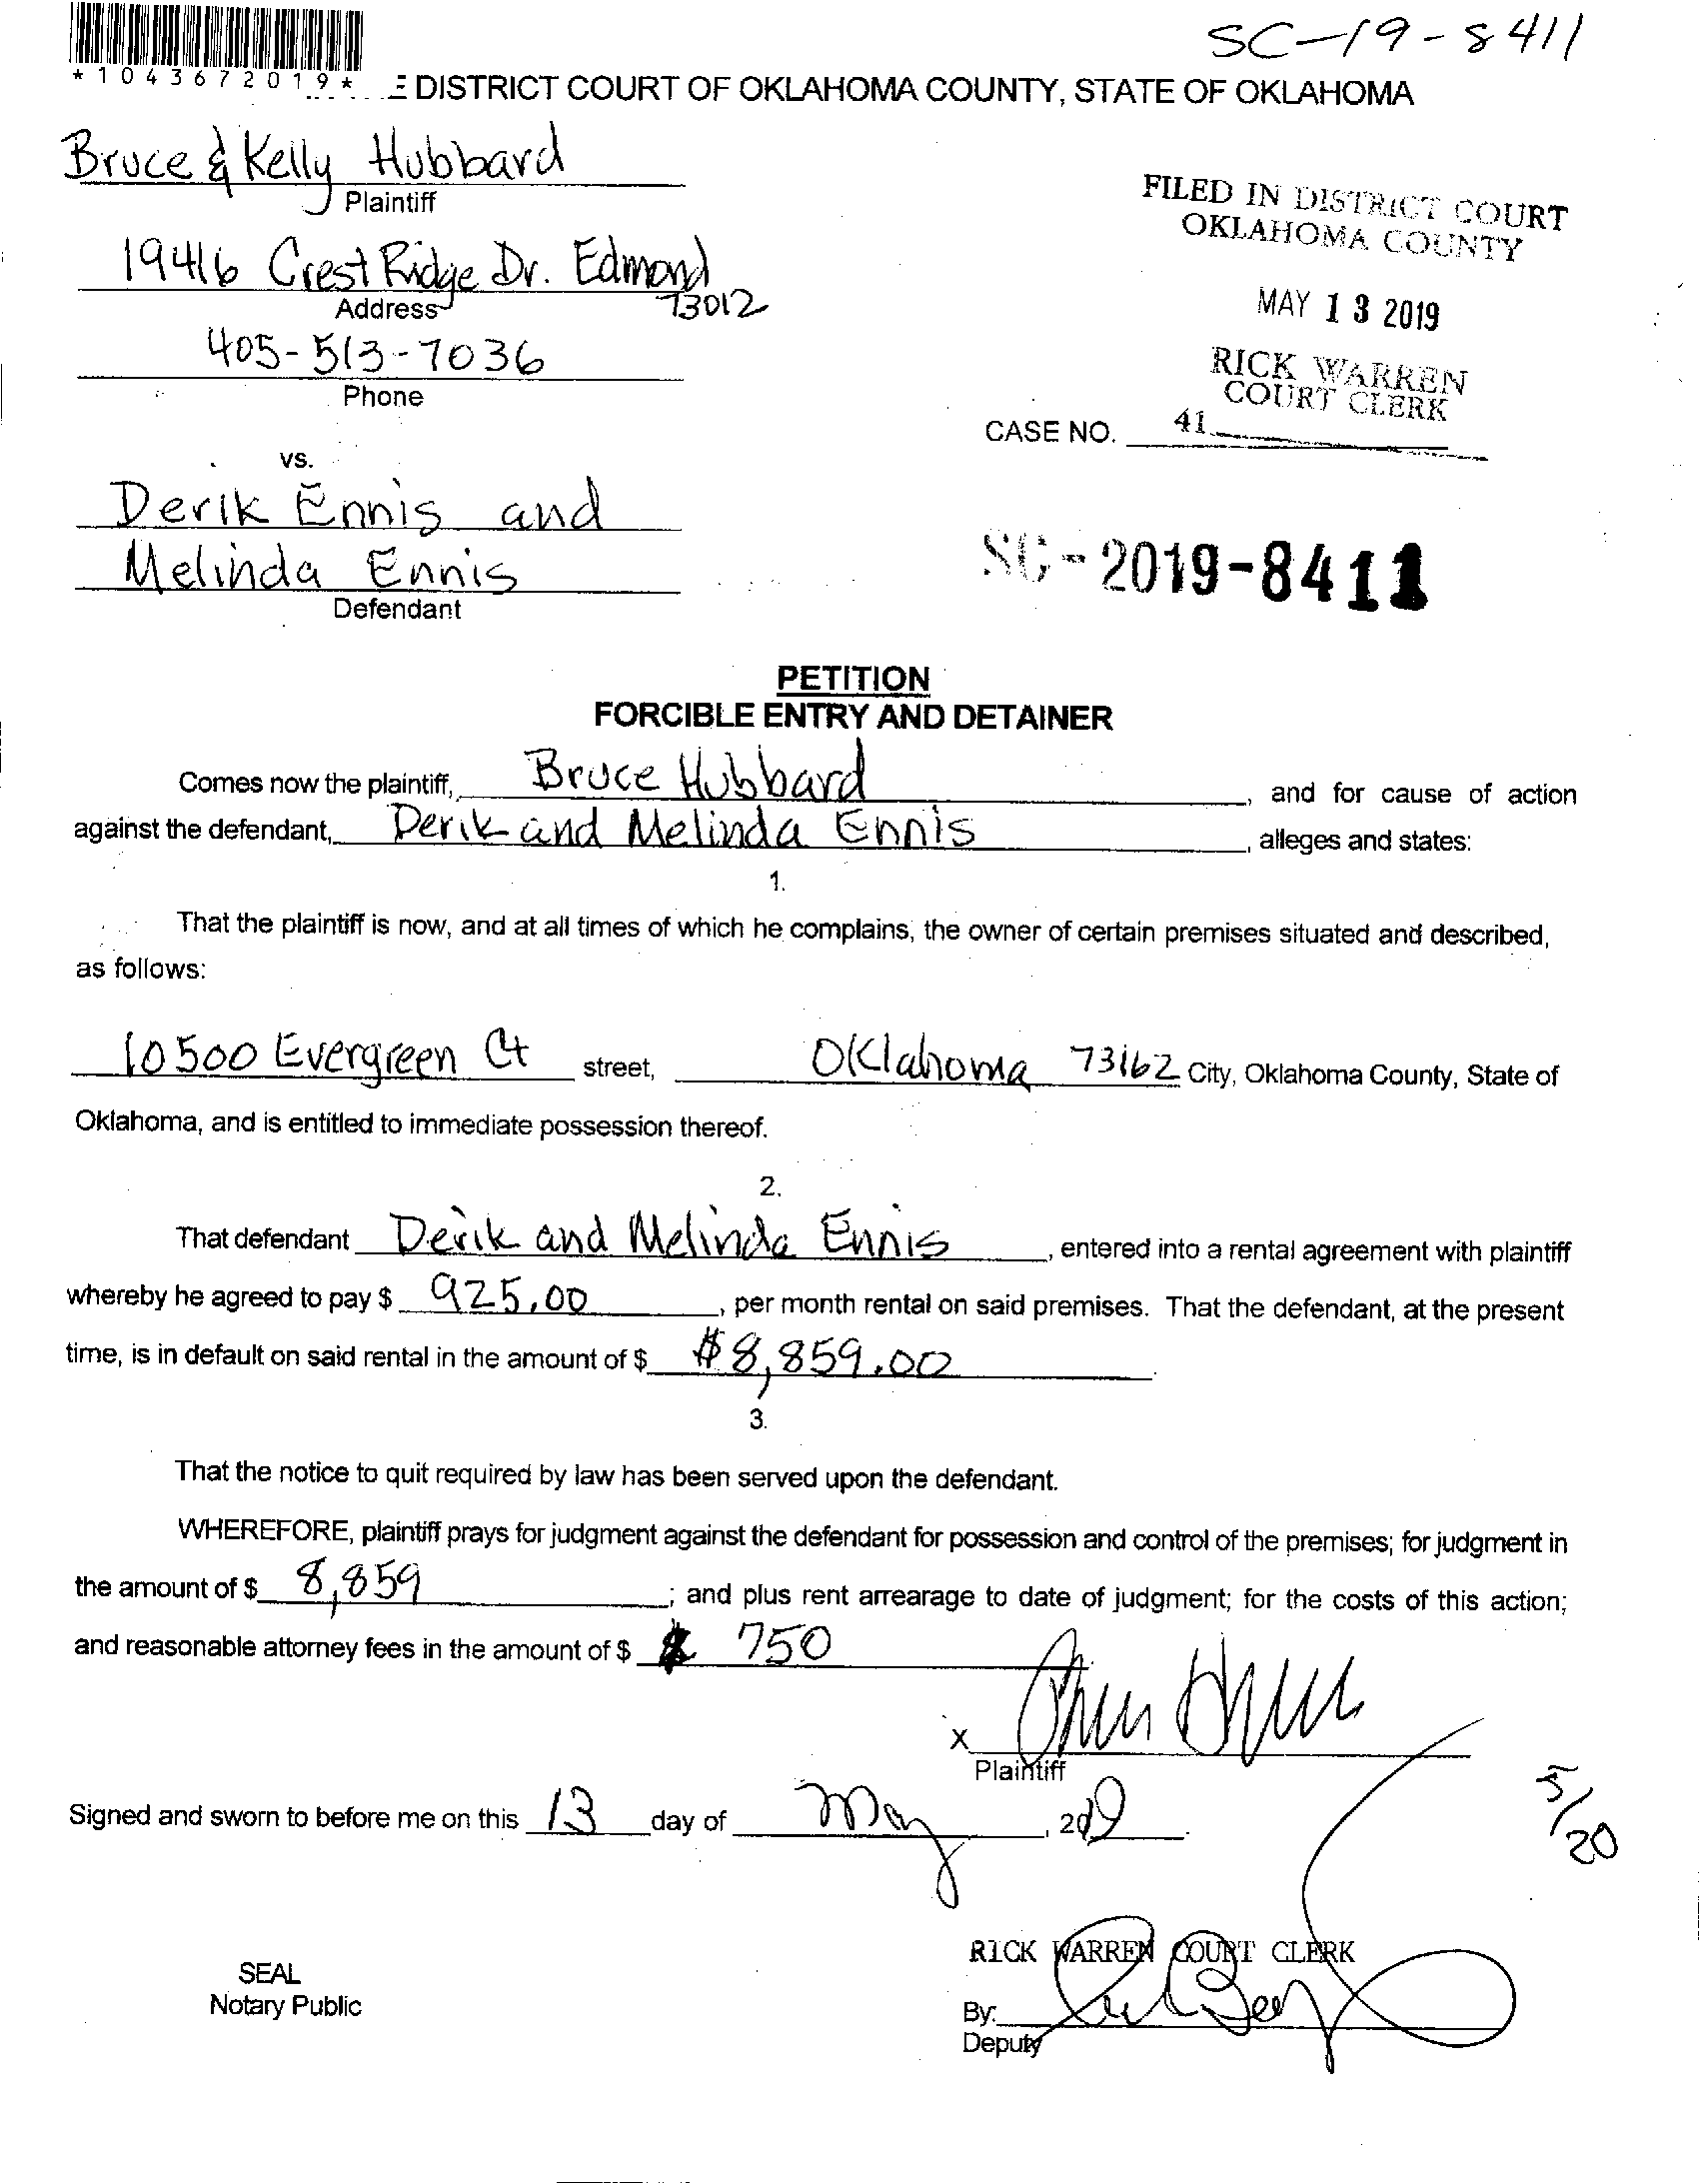 SC-19-8411
*1043672019*
E DISTRICT COURT OF OKLAHOMA COUNTY, STATE OF OKLAHOMA
Bruce & Kelly Hubbard
Plaintiff
FILED IN DISTRICT COURT
OKLAHOMA COUNTY
19416 Crest Ridge Dr. Edmond
Address 73012
MAY 13 2019
405-513-7036
Phone
RICK WARREN
COURT CLERK
CASE NO. 41
vs.
Derik Ennis and
Melinda Ennis
Defendant
SC-2019-8411
PETITION
FORCIBLE ENTRY AND DETAINER
Comes now the plaintiff, Bruce Hubbard, and for cause of action
against the defendant, Derik and Melinda Ennis, alleges and states:
1.
That the plaintiff is now, and at all times of which he complains, the owner of certain premises situated and described,
as follows:
10500 Evergreen Ct street, Oklahoma 73162 City, Oklahoma County, State of
Oklahoma, and is entitled to immediate possession thereof.
2.
That defendant Derik and Melinda Ennis, entered into a rental agreement with plaintiff
whereby he agreed to pay $ 925.00, per month rental on said premises. That the defendant, at the present
time, is in default on said rental in the amount of $ $8,859.00.
3.
That the notice to quit required by law has been served upon the defendant.
WHEREFORE, plaintiff prays for judgment against the defendant for possession and control of the premises; for judgment in
the amount of $ 8,859; and plus rent arrearage to date of judgment; for the costs of this action;
and reasonable attorney fees in the amount of $ 750
x
Plaintiff
Signed and sworn to before me on this 13 day of May, 2019.
5/20
RICK WARREN COURT CLERK
SEAL
Notary Public
By:
Deputy